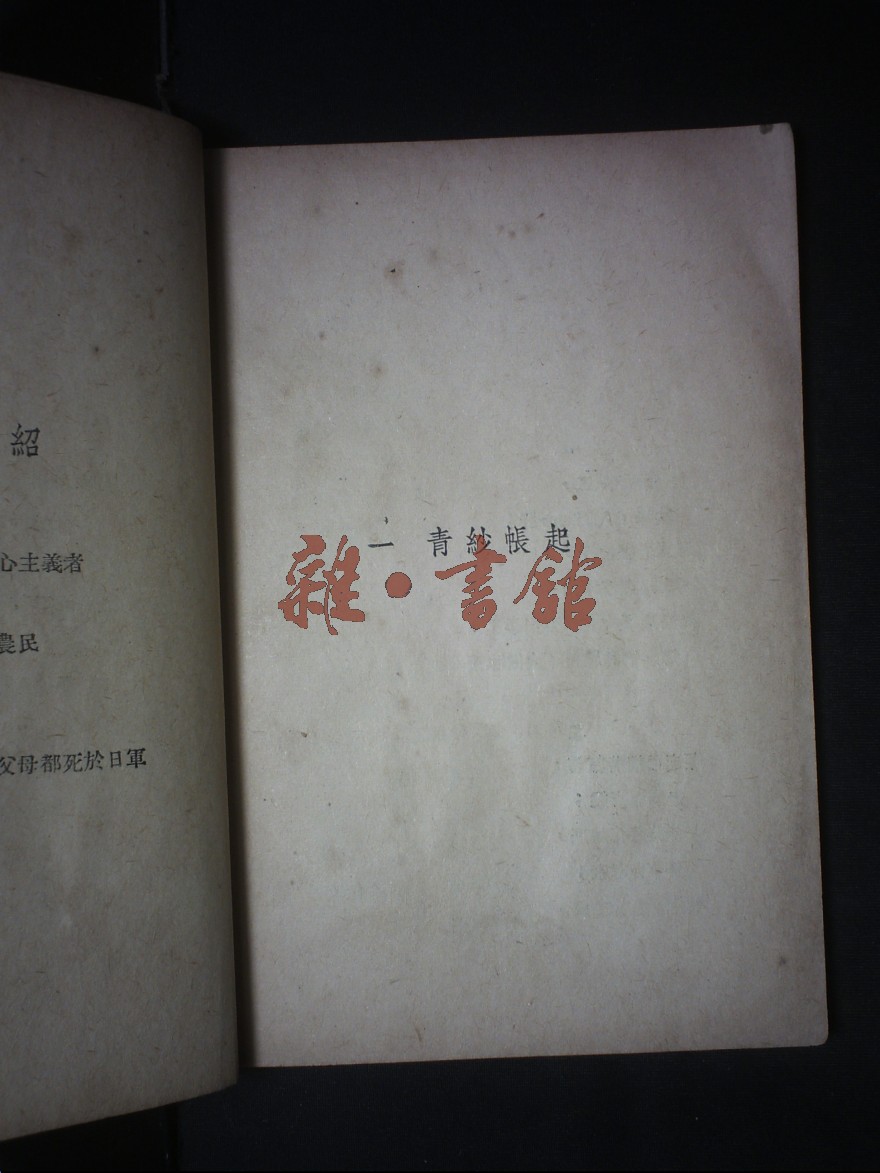 紹
心主義者
農民
父母都死於日軍
一 青紗帳起
雜·書館